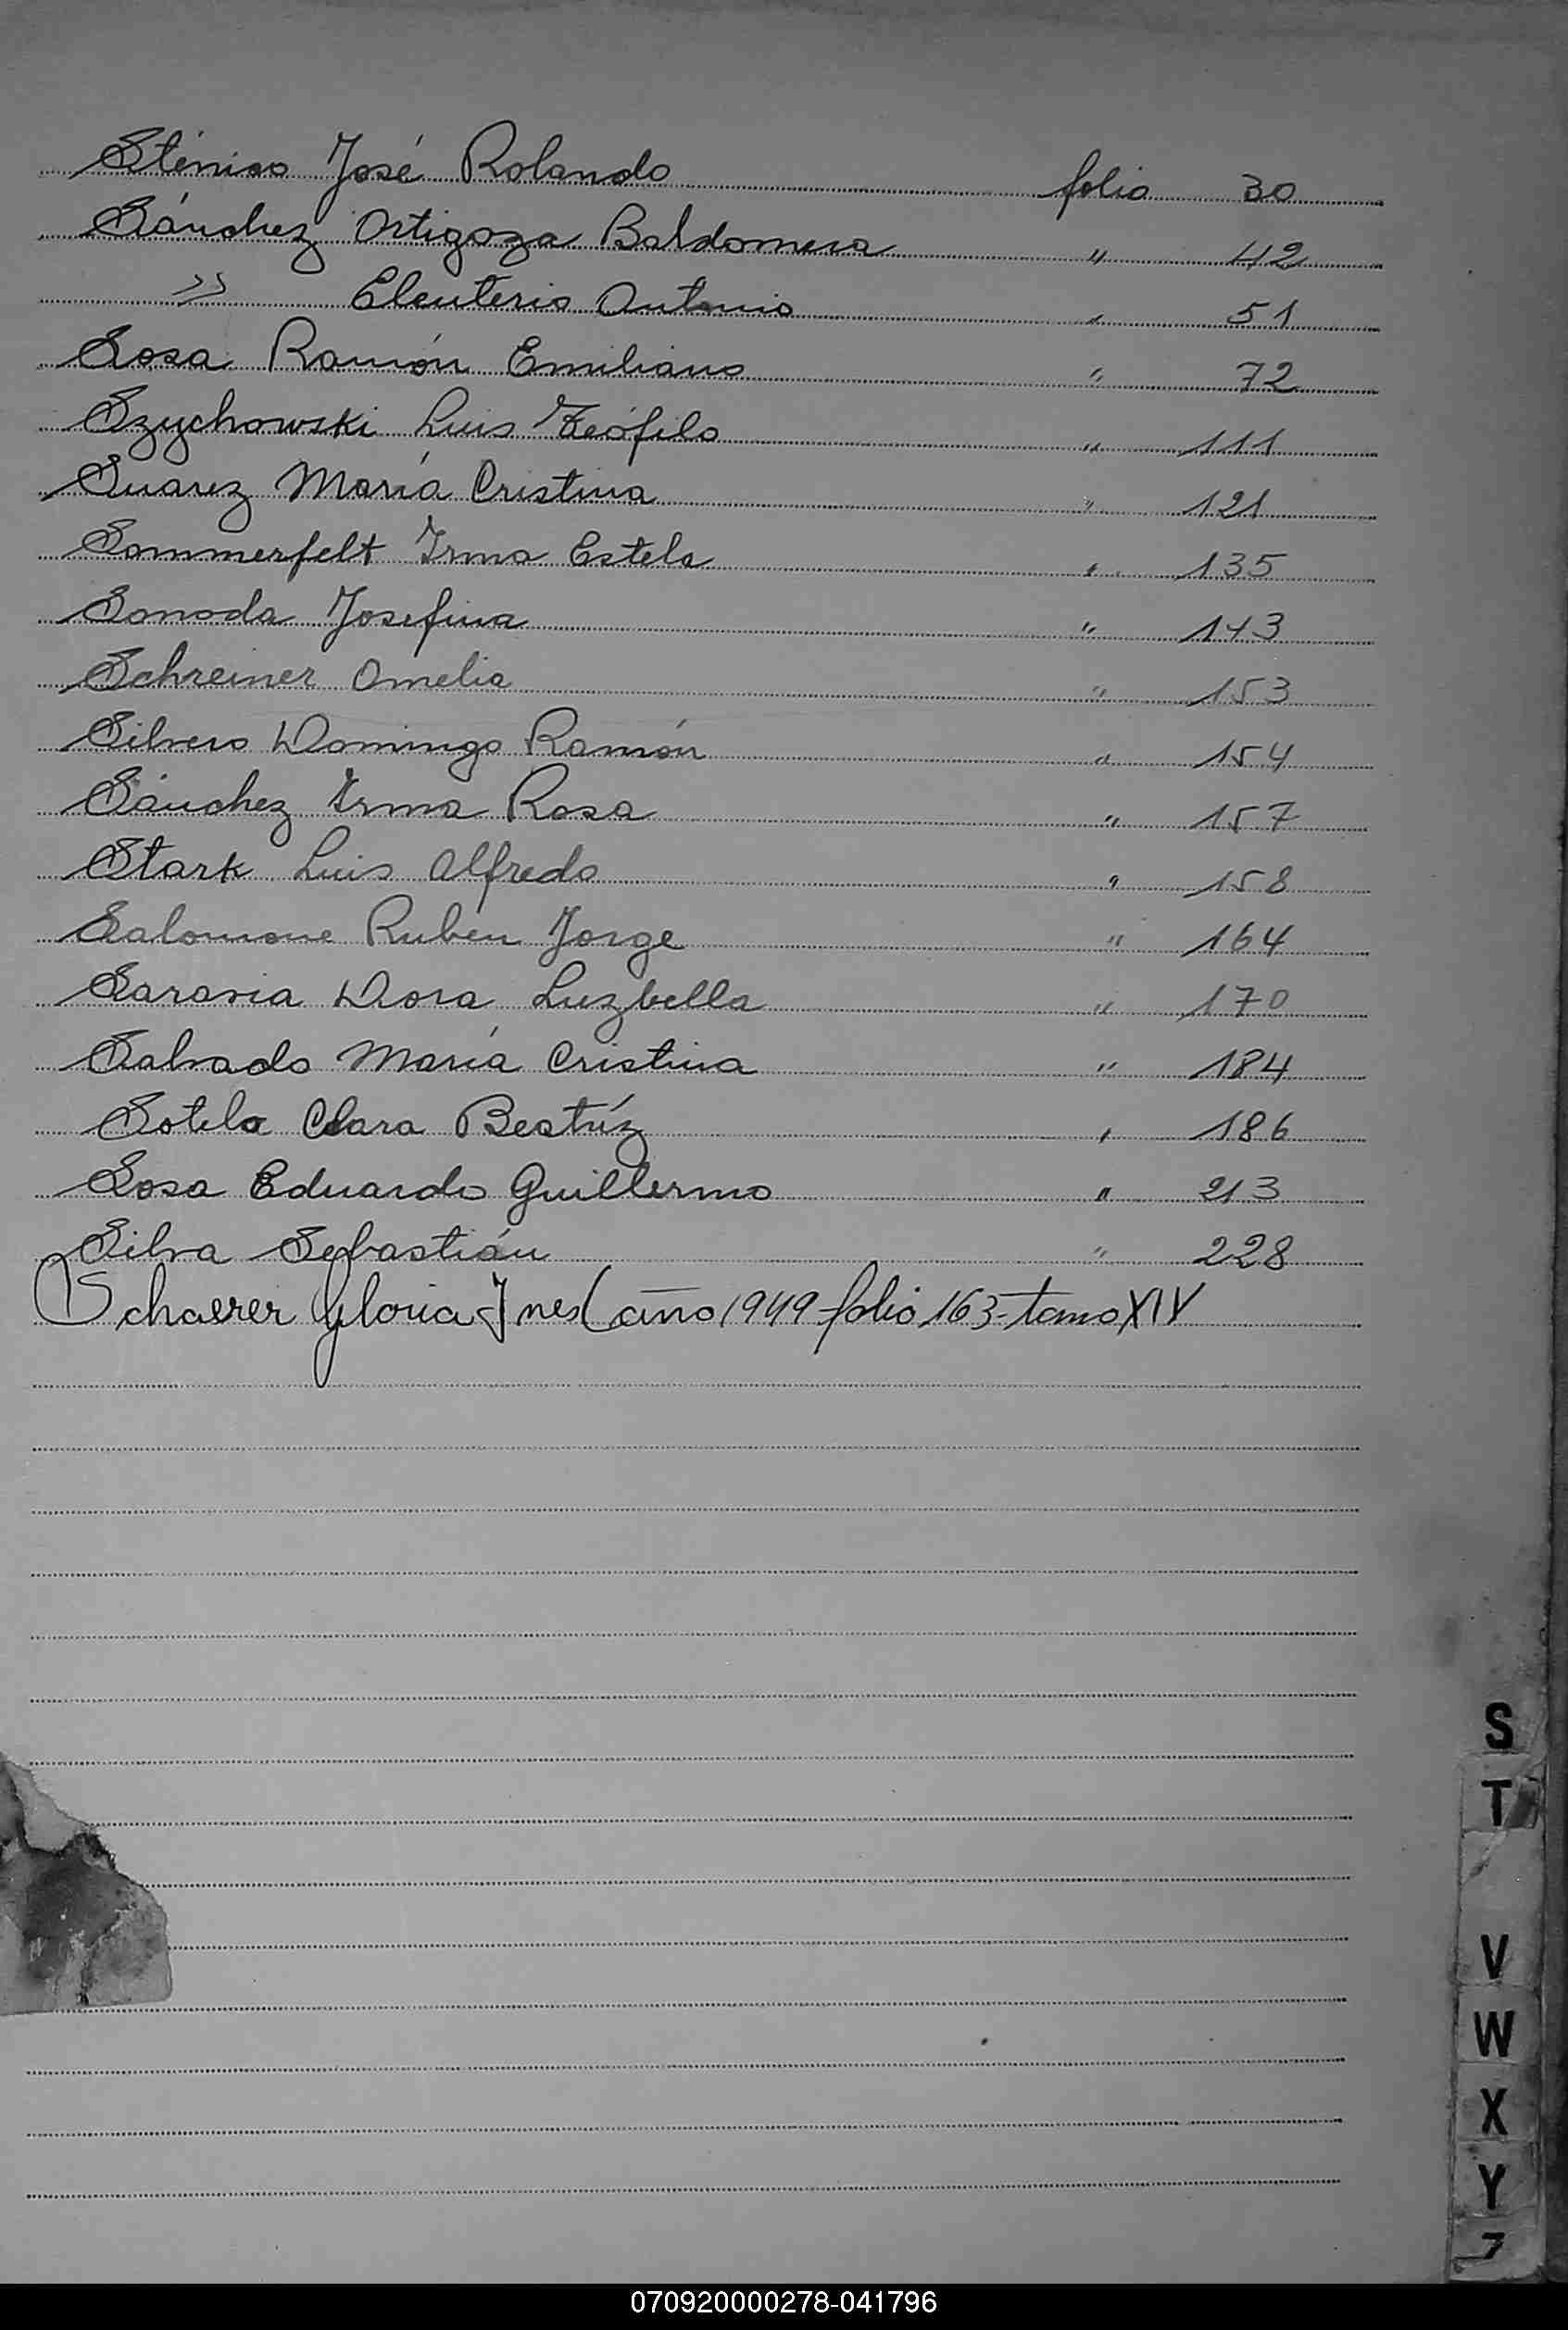 Sténico José Rolando folio 30
Sánchez Ortigoza Baldomera " 42
" Eleuterio Antonio " 51
Sosa Ramón Emiliano " 72
Szychowski Luis Teófilo " 111
Suarez María Cristina " 121
Sommerfelt Irma Estela " 135
Sonoda Josefina " 143
Schreiner Amelia " 153
Silvero Domingo Ramón " 154
Sánchez Irma Rosa " 157
Stark Luis Alfredo " 158
Salomone Rubén Jorge " 164
Saravia Dora Luzbella " 170
Salvado María Cristina " 184
Sotelo Clara Beatríz " 186
Sosa Eduardo Guillermo " 213
Silva Sebastián " 228
Schaerer Gloria Ines (año 1949 folio 163-tomo XIV
S
T
V
W
X
Y
Z
070920000278-041796